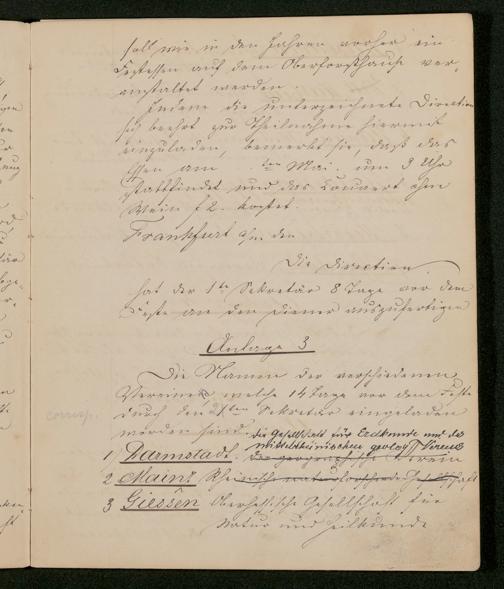 soll wie in den Jahren vorher ein
Festessen auf dem Oberforsthause ver-
anstaltet werden.
Indem die unterzeichnete Direction
sich beehrt zur Theilnahme hiermit
einzuladen, bemerkt sie, daß das
Essen am ten Mai, um 3 Uhr
stattfindet und das Couvert ohne
Wein f 2. kostet.
Frankfurt a/m den
Die Direction.
hat der 1te Sekretär 8 Tage vor dem
Feste an den Diener auszufertigen
Anlage 3
Die Namen der verschiedenen
Vereine, welche 14 Tage vor dem Feste
durch den 2ten Sekretär eingeladen
corresp.
werden sind. die Gesellschaft für Erdkunde und der
mittelrheinische geolog. Verein
1 Darmstadt. der Verein
2 Mainz Rheinische naturforschende Gesellschaft
3 Giessen Oberhessische Gesellschaft für
Natur und Heilkunde